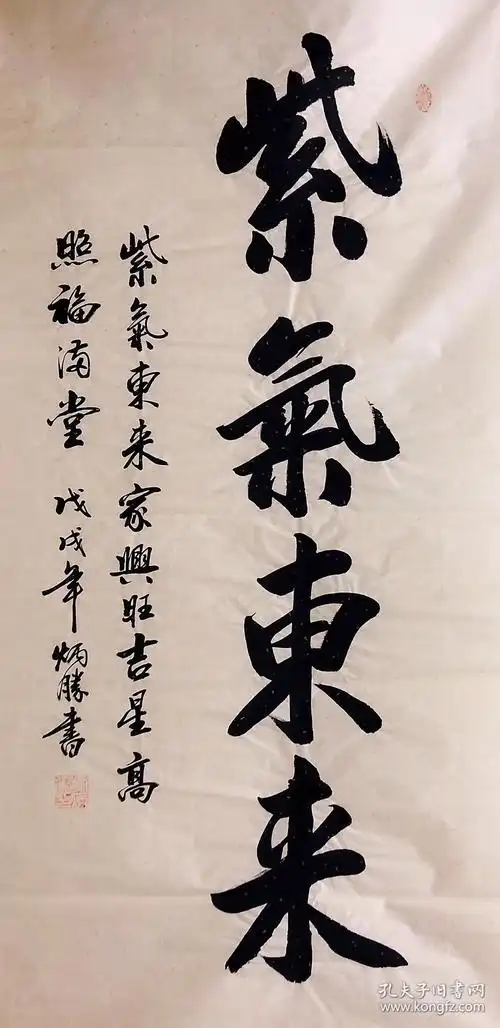 紫氣東来
紫氣東来家興旺吉星高
照福满堂 戊戌年 炳勝書
孔夫子旧书网
www.kongfz.com